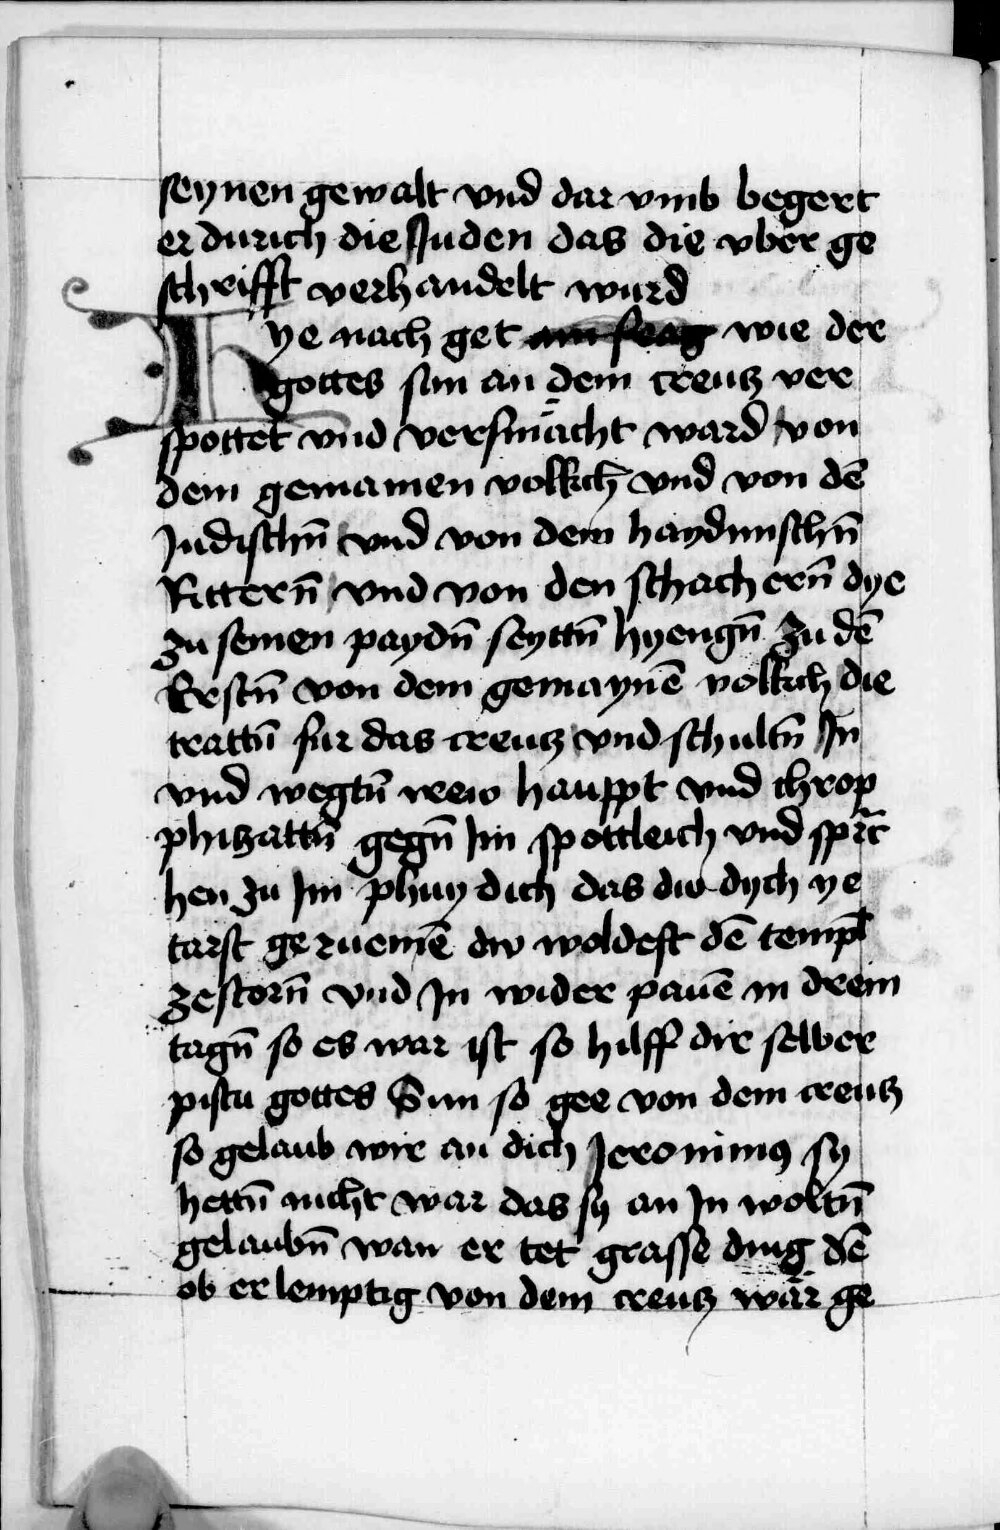 seynen gewalt vnd dar vmb begert
er durich die Juden das die vber ge
schrifft verhandelt wurd
Hye nach get am frag wie der
gottes sun an dem creutz ver
spottet vnd versmächt ward von
dem gemainen volkch vnd von dē
Judischn̄ vnd von dem haydnischn̄
Rittern̄ vnd von den schachern̄ dye
zu seinen paydn̄ seyttn̄ hyengn̄ zu dē
Erstn̄ von dem gemaynē volkch die
trattn̄ fur das creutz vnd schultn̄ In
vnd wegtn̄ irew hauppt vnd chrop
phitzattn̄ gegn̄ Im spottleich vnd sprc̄
hen zu Im phuy dich das dw dych ye
tarst geruemē dw woldest dē templ
zestorn̄ vnd In wider pauē in drein
tagn̄ so es war ist so hilff dir selber
pistu gottes Sun so gee von dem creutz
so gelaub wir an dich Jeronimus sy
hettn̄ nicht war das sy an In woltn̄
gelaubn̄ wan er tet grasse ding dē
ob er lemptig von dem creutz wär ge